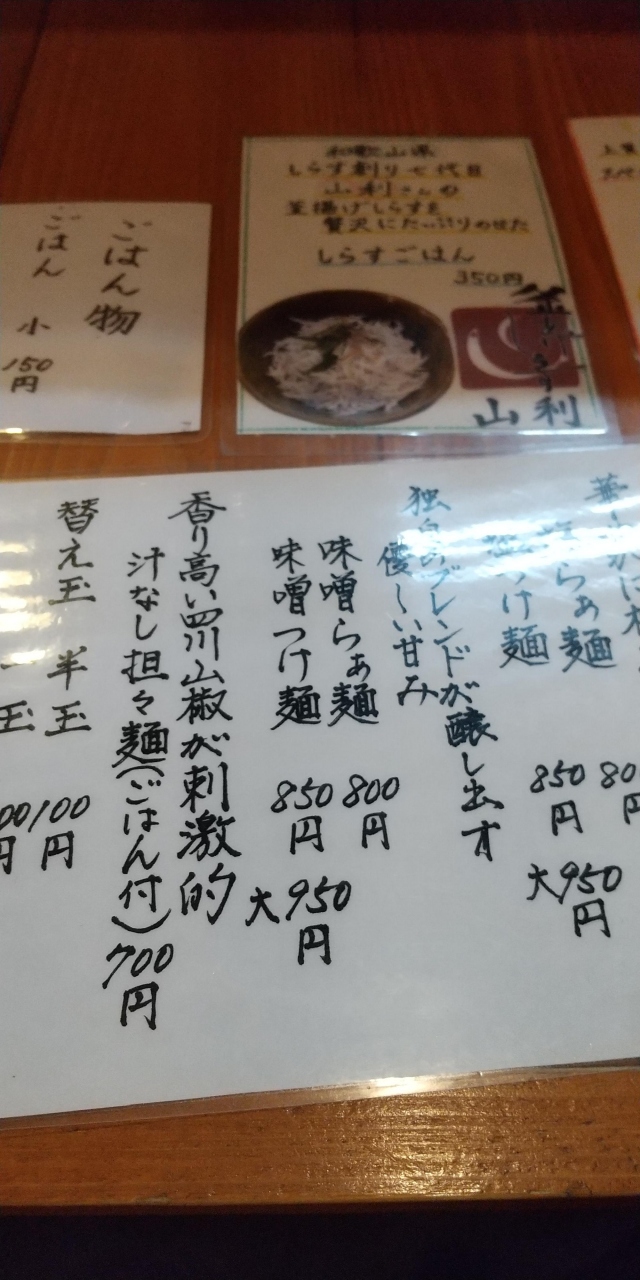 ごはん物
ごはん 小
150円
和歌山県
しらす創り七代目
山利さんの
釜揚げしらすを
贅沢にたっぷりのせた
しらすごはん
350円
山利
つけ麺
850円
大950円
独自のブレンドが醸し出す
優しい甘み
味噌らぁ麺 800円
味噌つけ麺 850円
大950円
香り高い四川山椒が刺激的
汁なし担々麺(ごはん付) 700円
替え玉 半玉 100円